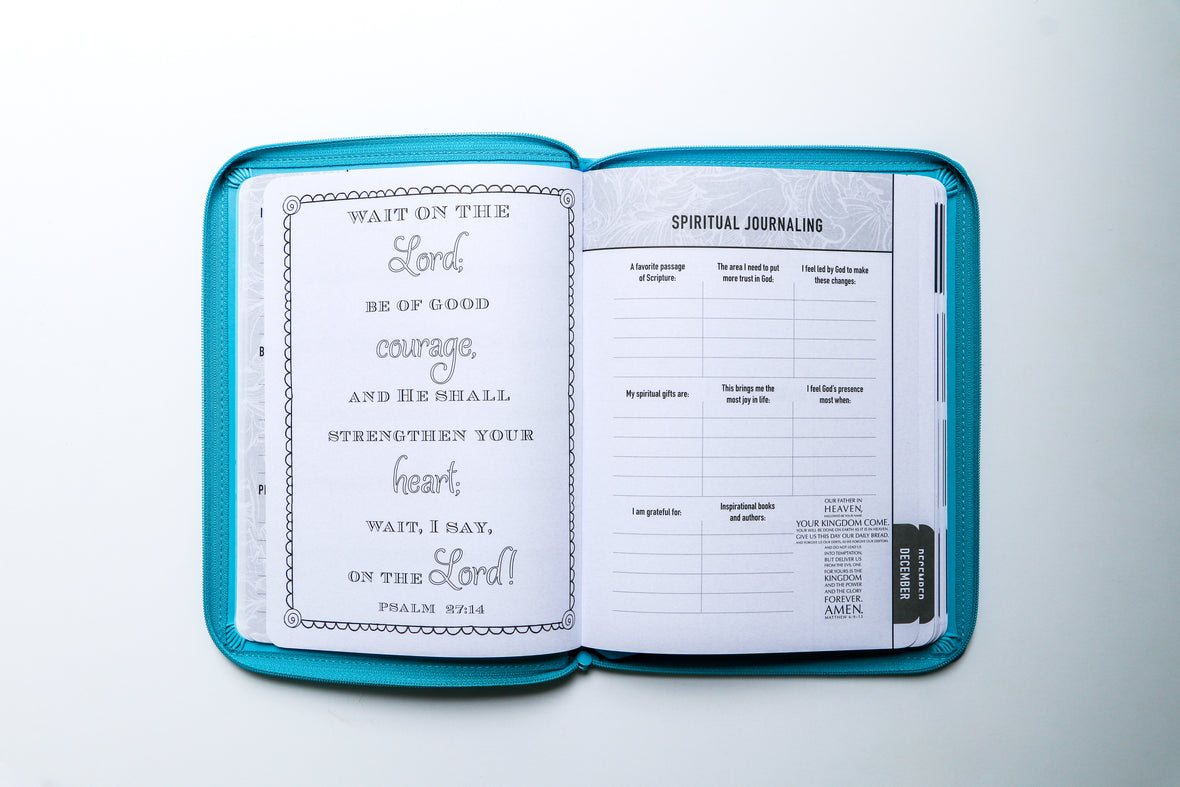 WAIT ON THE
Lord;
BE OF GOOD
courage,
AND HE SHALL
STRENGTHEN YOUR
heart;
WAIT, I SAY,
ON THE Lord!
PSALM 27:14
SPIRITUAL JOURNALING
A favorite passage
of Scripture:
The area I need to put
more trust in God:
I feel led by God to make
these changes:
My spiritual gifts are:
This brings me the
most joy in life:
I feel God's presence
most when:
I am grateful for:
Inspirational books
and authors:
OUR FATHER IN
HEAVEN,
HALLOWED BE YOUR NAME.
YOUR KINGDOM COME.
YOUR WILL BE DONE ON EARTH AS IT IS IN HEAVEN.
GIVE US THIS DAY OUR DAILY BREAD.
AND FORGIVE US OUR DEBTS, AS WE FORGIVE OUR DEBTORS.
AND DO NOT LEAD US
INTO TEMPTATION,
BUT DELIVER US
FROM THE EVIL ONE.
FOR YOURS IS THE
KINGDOM
AND THE POWER
AND THE GLORY
FOREVER.
AMEN.
MATTHEW 6:9-13
DECEMBER
DECEMBER